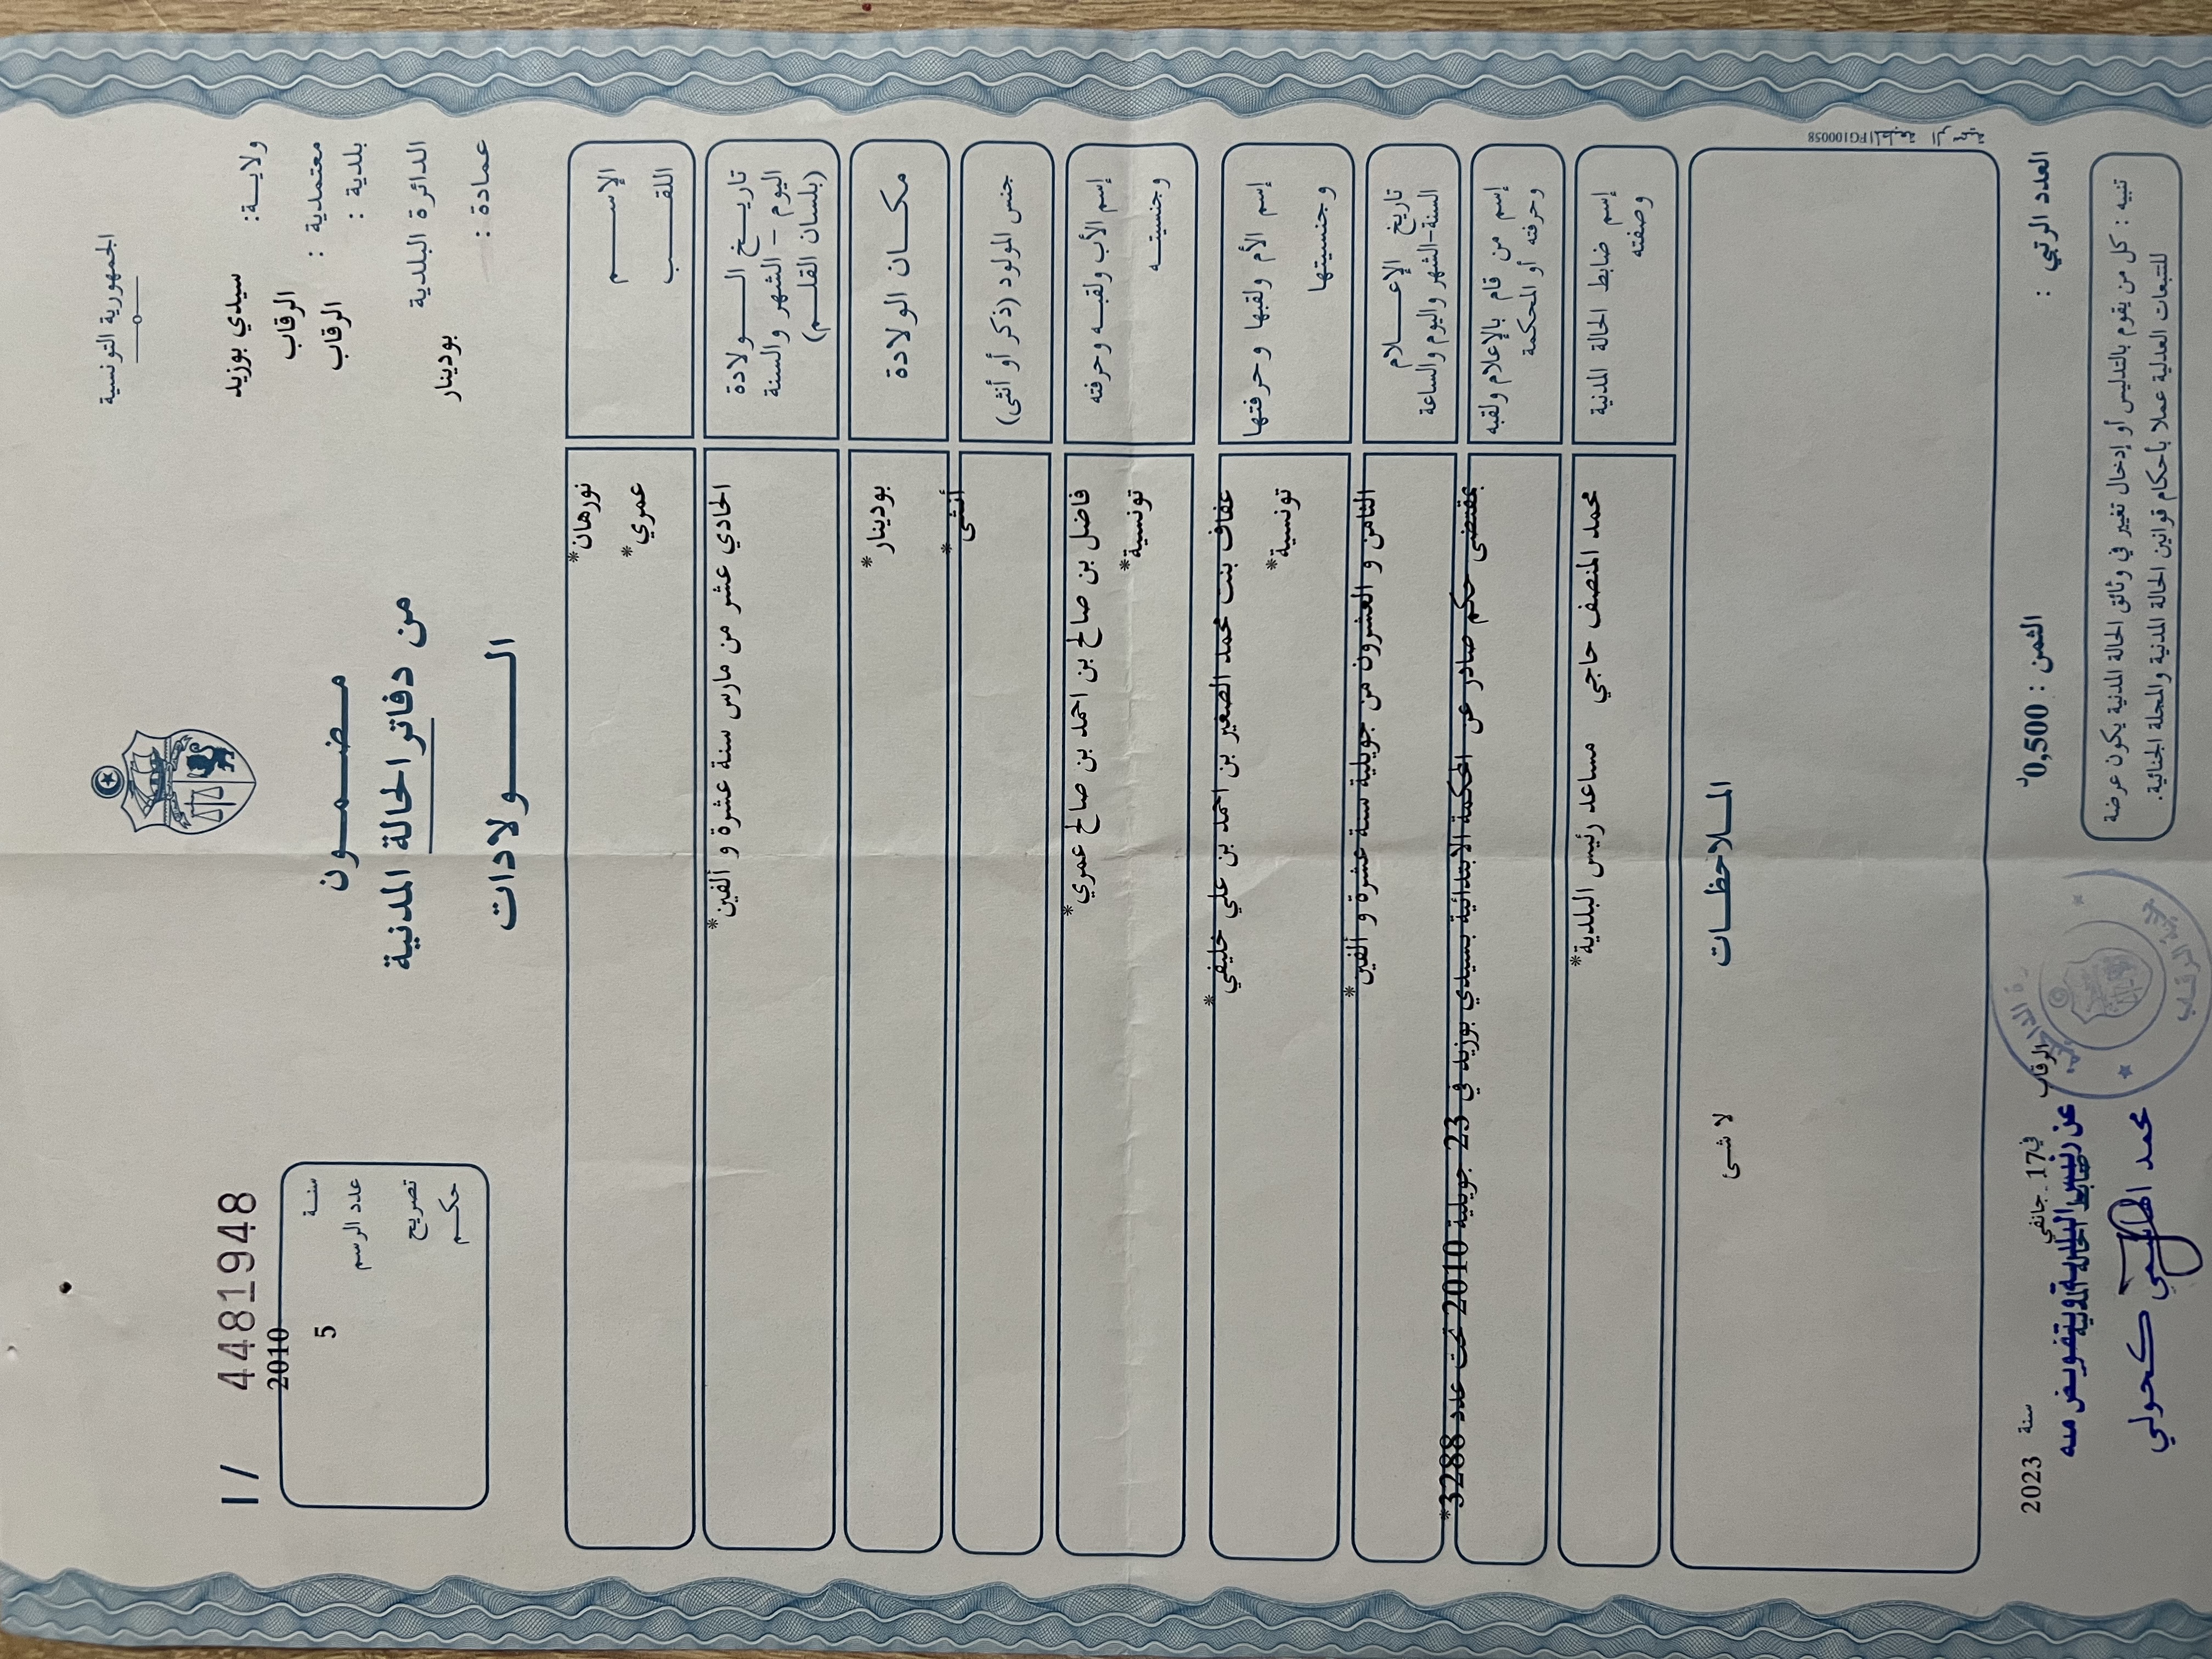 الجمهورية التونسية
ولايــة: سيدي بوزيد
معتمدية : الرقاب
بلدية : الرقاب
الدائرة البلدية
بودينار
عمادة :
مـضـمـون
من دفاتر الحالة المدنية
الـولادات
I / 44819448
سنـة 2010
عدد الرسم 5
تصريح
حكـم
الإســم
نورهان*
اللقـب
عمري*
تاريـخ الـولادة
اليوم - الشهر والسنة
(بلسان القلـم)
الحادي عشر من مارس سنة عشرة و ألفين*
مكـان الولادة
بودينار*
جنس المولود (ذكر أو أنثى)
أنثى*
إسم الأب ولقبـه وحرفته
فاضل بن صالح بن احمد بن صالح عمري*
وجنسيتـه
تونسية*
إسم الأم ولقبها وحرفتها
عفاف بنت محمد الصغير بن احمد بن علي خليفي*
وجنسيتها
تونسية*
تاريخ الإعـلام
السنة-الشهر واليوم والساعة
الثامن و العشرون من جويلية سنة عشرة و ألفين*
إسم من قام بالإعلام ولقبه
وحرفته أو المحكمة
بمقتضى حكم صادر عن المحكمة الابتدائية بسيدي بوزيد في 23 جويلية 2010 تحت عدد 3288*
إسم ضابط الحالة المدنية
وصفته
محمد المنصف حاجي مساعد رئيس البلدية*
المـلاحظـات
لا شئ
المطبعة الرسمية
FG100058
العدد الرتبي :
الثمن : 0,500د
تنبيه : كل من يقوم بالتدليس أو إدخال تغيير في وثائق الحالة المدنية يكون عرضة
للتتبعات العدلية عملا بأحكام قوانين الحالة المدنية والمجلة الجنائية.
الرقاب في 17 جانفي سنة 2023
ضابط الحالة المدنية
عن رئيس البلدية وبتفويض منه
محمد الهاشمي كحولي
بلدية الرقاب